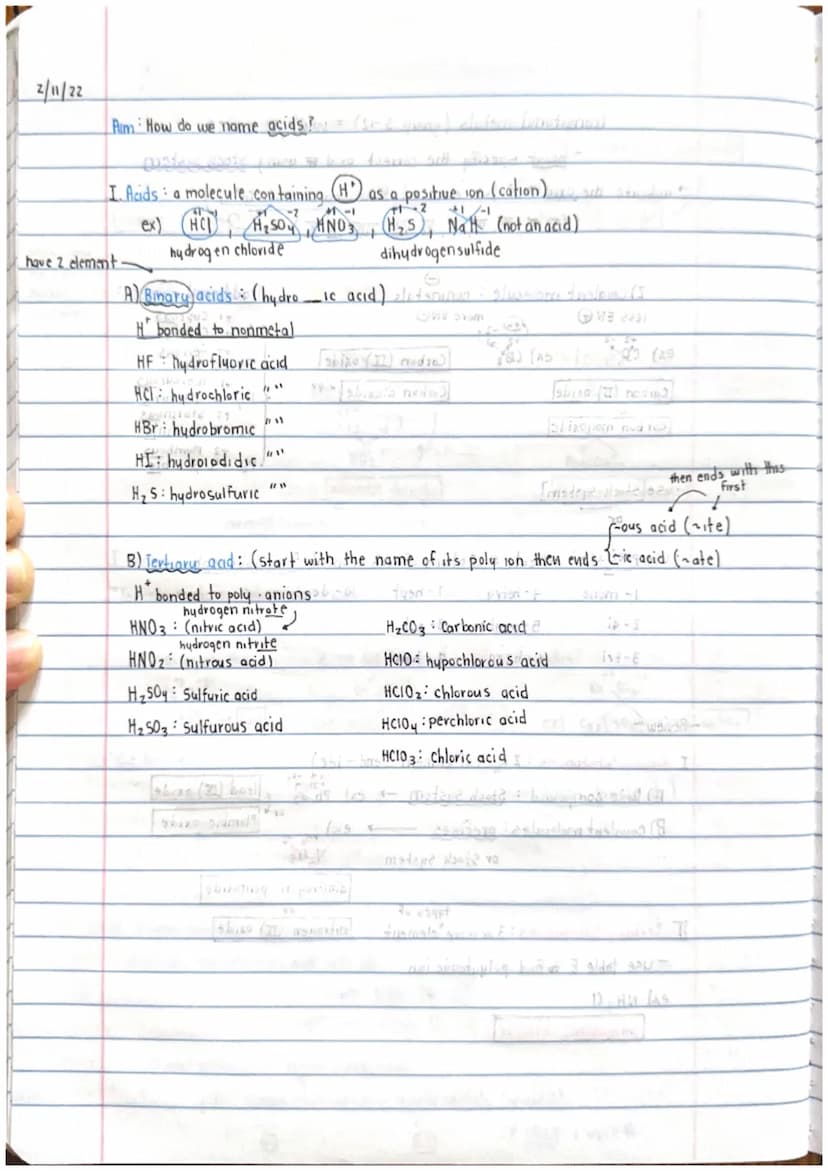 2/11/22
Aim: How do we name acids?
I. Acids: a molecule containing H⁺ as a positive ion (cation)
+1 -1 +1 -2 +1 -1 +1 -2 +1 -1
ex) HCl, H₂SO₄, HNO₃, H₂S, NaH (not an acid)
hydrogen chloride dihydrogensulfide
have 2 element
A) Binary acids: (hydro __ic acid)
H⁺ bonded to nonmetal
HF: hydrofluoric acid
HCl: hydrochloric " "
HBr: hydrobromic " "
HI: hydroiodidic " "
H₂S: hydrosulfuric " "
then ends with this
first
-ous acid (~ite)
B) Tertiary acid: (start with the name of its poly ion then ends -ic acid (~ate)
H⁺ bonded to poly-anions
hydrogen nitrate
HNO₃: (nitric acid) H₂CO₃: Carbonic acid
hydrogen nitrite
HNO₂: (nitrous acid) HClO: hypochlorous acid
H₂SO₄: Sulfuric acid HClO₂: chlorous acid
H₂SO₃: sulfurous acid HClO₄: perchloric acid
HClO₃: chloric acid